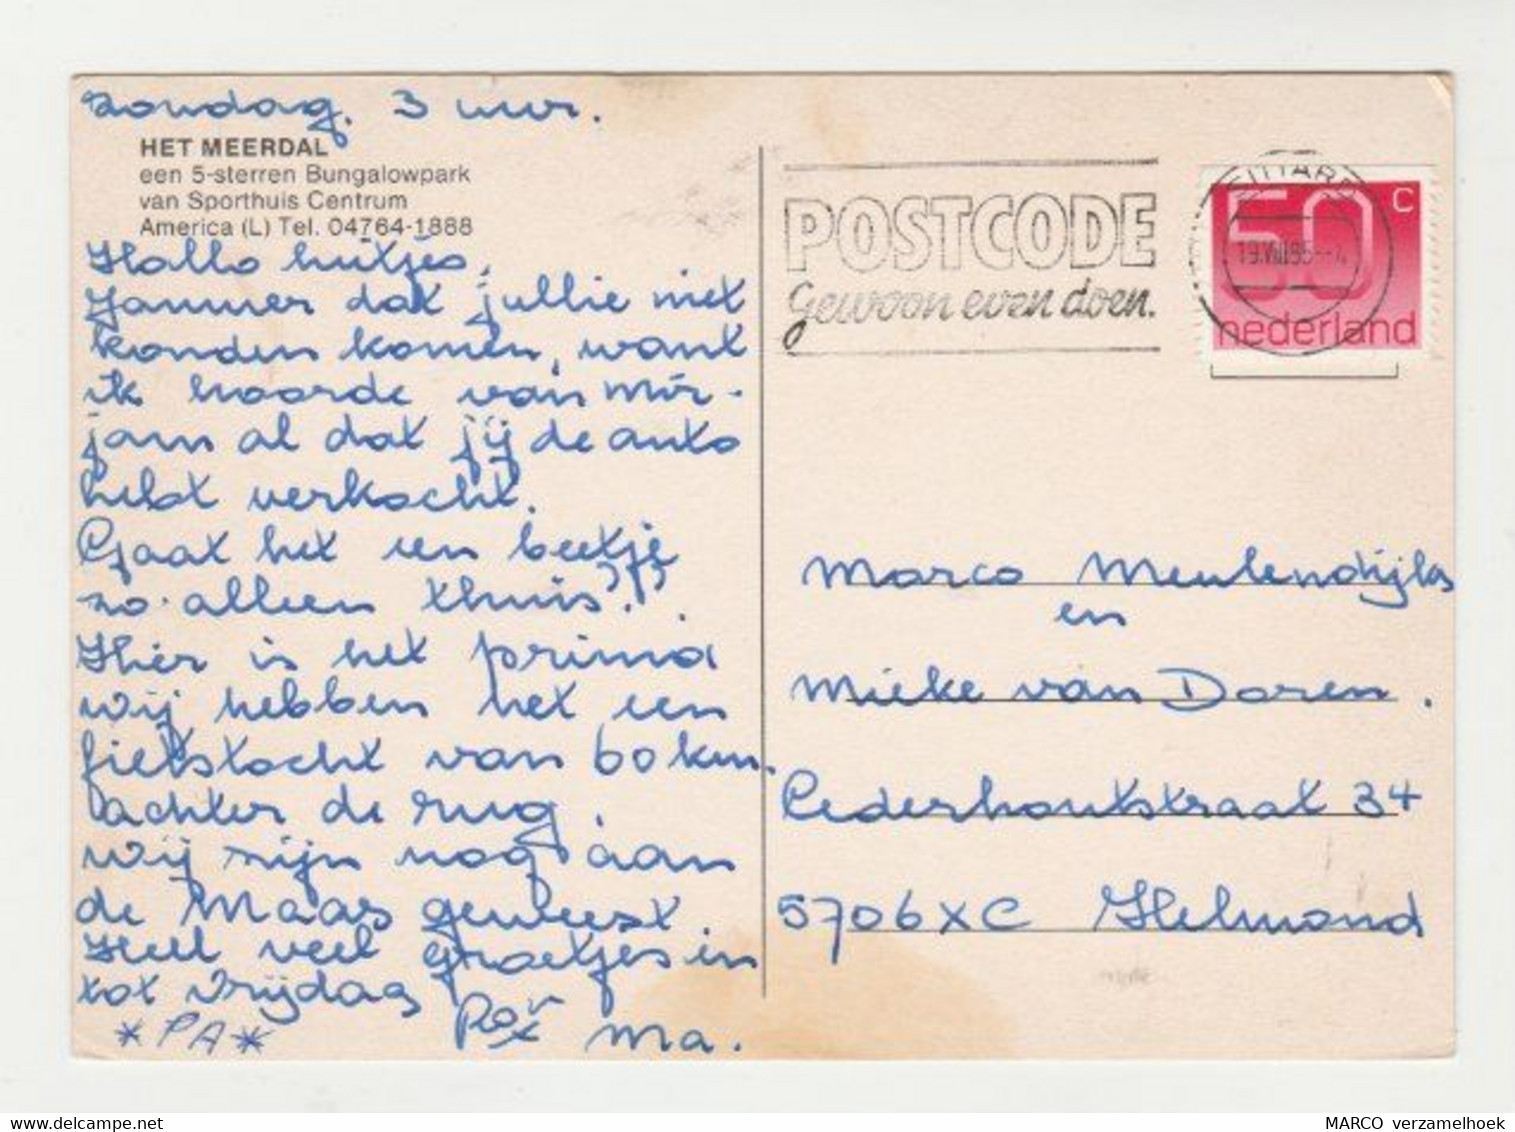 zondag. 3 uur.
HET MEERDAL
een 5-sterren Bungalowpark
van Sporthuis Centrum
America (L) Tel. 04764-1888
Hallo luitjes,
Jammer dat jullie niet
konden komen, want
ik hoorde van Mir-
jam al dat jij de auto
hebt verkocht.
Gaat het een beetje
zo alleen thuis??
Hier is het prima
wij hebben het een
fietstocht van 60 km.
achter de rug.
wij zijn nog aan
de Maas geweest.
Heel veel groetjes en
tot Vrijdag
*PA* Ma.
POSTCODE
gewoon even doen.
SITTARD
19.VIII.85
50 C
nederland
Marco Meulendijks
en
Mieke van Doren.
Cederhoutstraat 34
5706XC Helmond
MARCO verzamelhoek